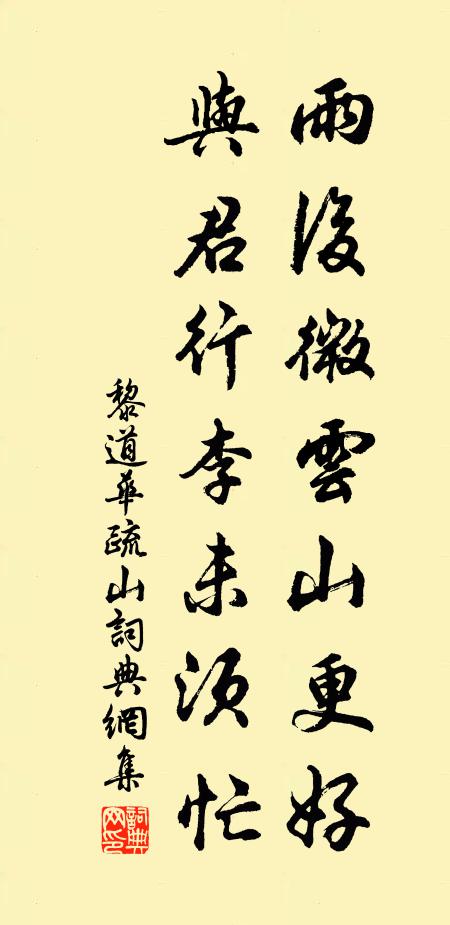 雨後微雲山更好
與君行李未須忙
黎道華疏山詞典網集
詞典網印